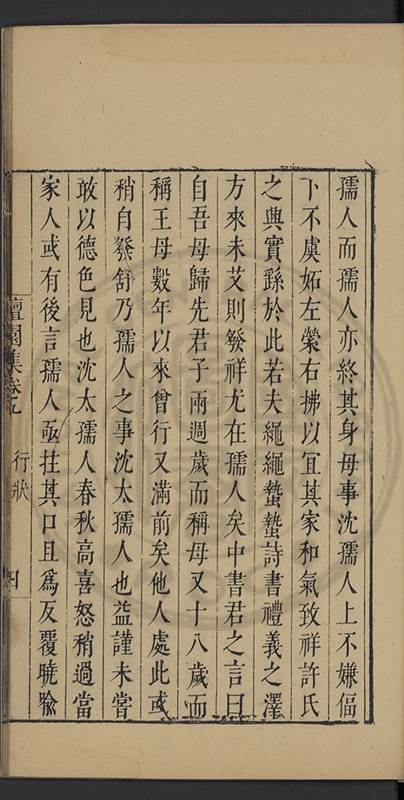 孺人而孺人亦終其身母事沈孺人上不嫌偪
下不虞妬左縈右拂以宜其家和氣致祥許氏
之興實繇於此若夫繩繩蟄蟄詩書禮義之澤
方來未艾則發祥尤在孺人矣中書君之言曰
自吾母歸先君子兩週歲而稱母又十八歲而
稱王母數年以來曾行又滿前矣他人處此或
稍自發舒乃孺人之事沈太孺人也益謹未嘗
敢以德色見也沈太孺人春秋高喜怒稍過當
家人或有後言孺人亟拄其口且為反覆曉喻
檀園集卷九 行狀 四